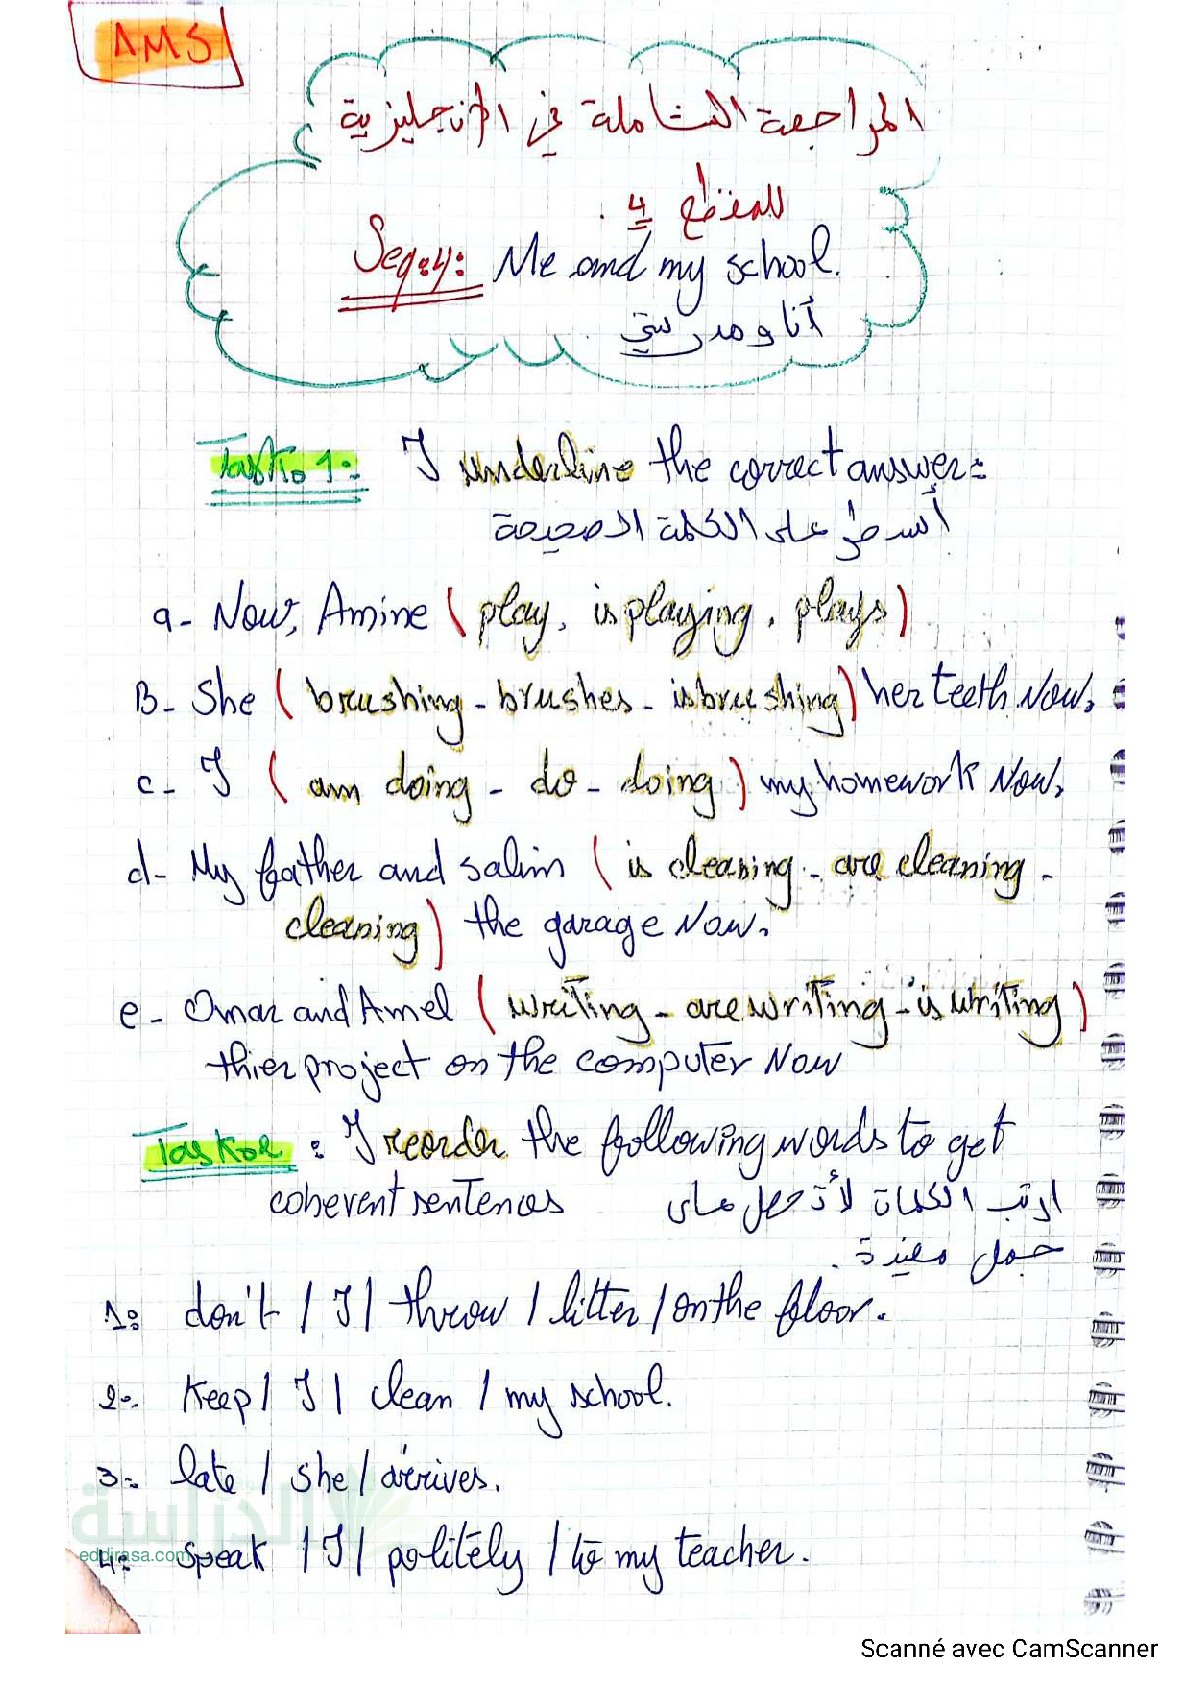 1MS
المراجعة الشاملة في الإنجليزية
للمقطع 4.
Seq:4: Me and my school.
أنا ومدرستي
Task 01: I underline the correct answer:
أسطر على الكلمة الصحيحة
a- Now, Amine ( play, is playing, plays)
B- She ( brushing - brushes - is brushing) her teeth Now.
c- I ( am doing - do - doing) my homework Now.
d- My father and salim ( is cleaning - are cleaning -
cleaning) the garage Now.
e- Omar and Amel ( writing - are writing - is writing )
thier project on the computer Now
Task 02 : I reorder the following words to get
coherent sentences ارتب الكلمات لأتحصل على
جمل مفيدة.
1: don't / I / throw / litter / on the floor.
2: Keep / I / clean / my school.
3: late / she / arrives.
4: speak / I / politely / to my teacher.
الدراسة
eddirasa.com
Scanné avec CamScanner